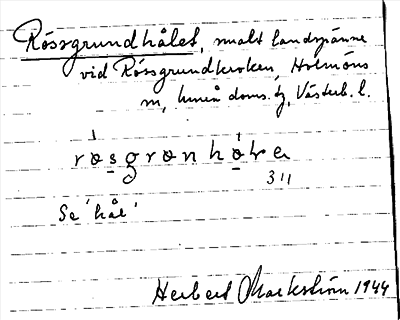 Rössgrundhålet, smalt landspänne
vid Rössgrundkroken, Holmöns
sn, Umeå doms. tg, Västerb. l.
røsgrønhøłe
311
Se 'hål'
Herbert Markström 1944